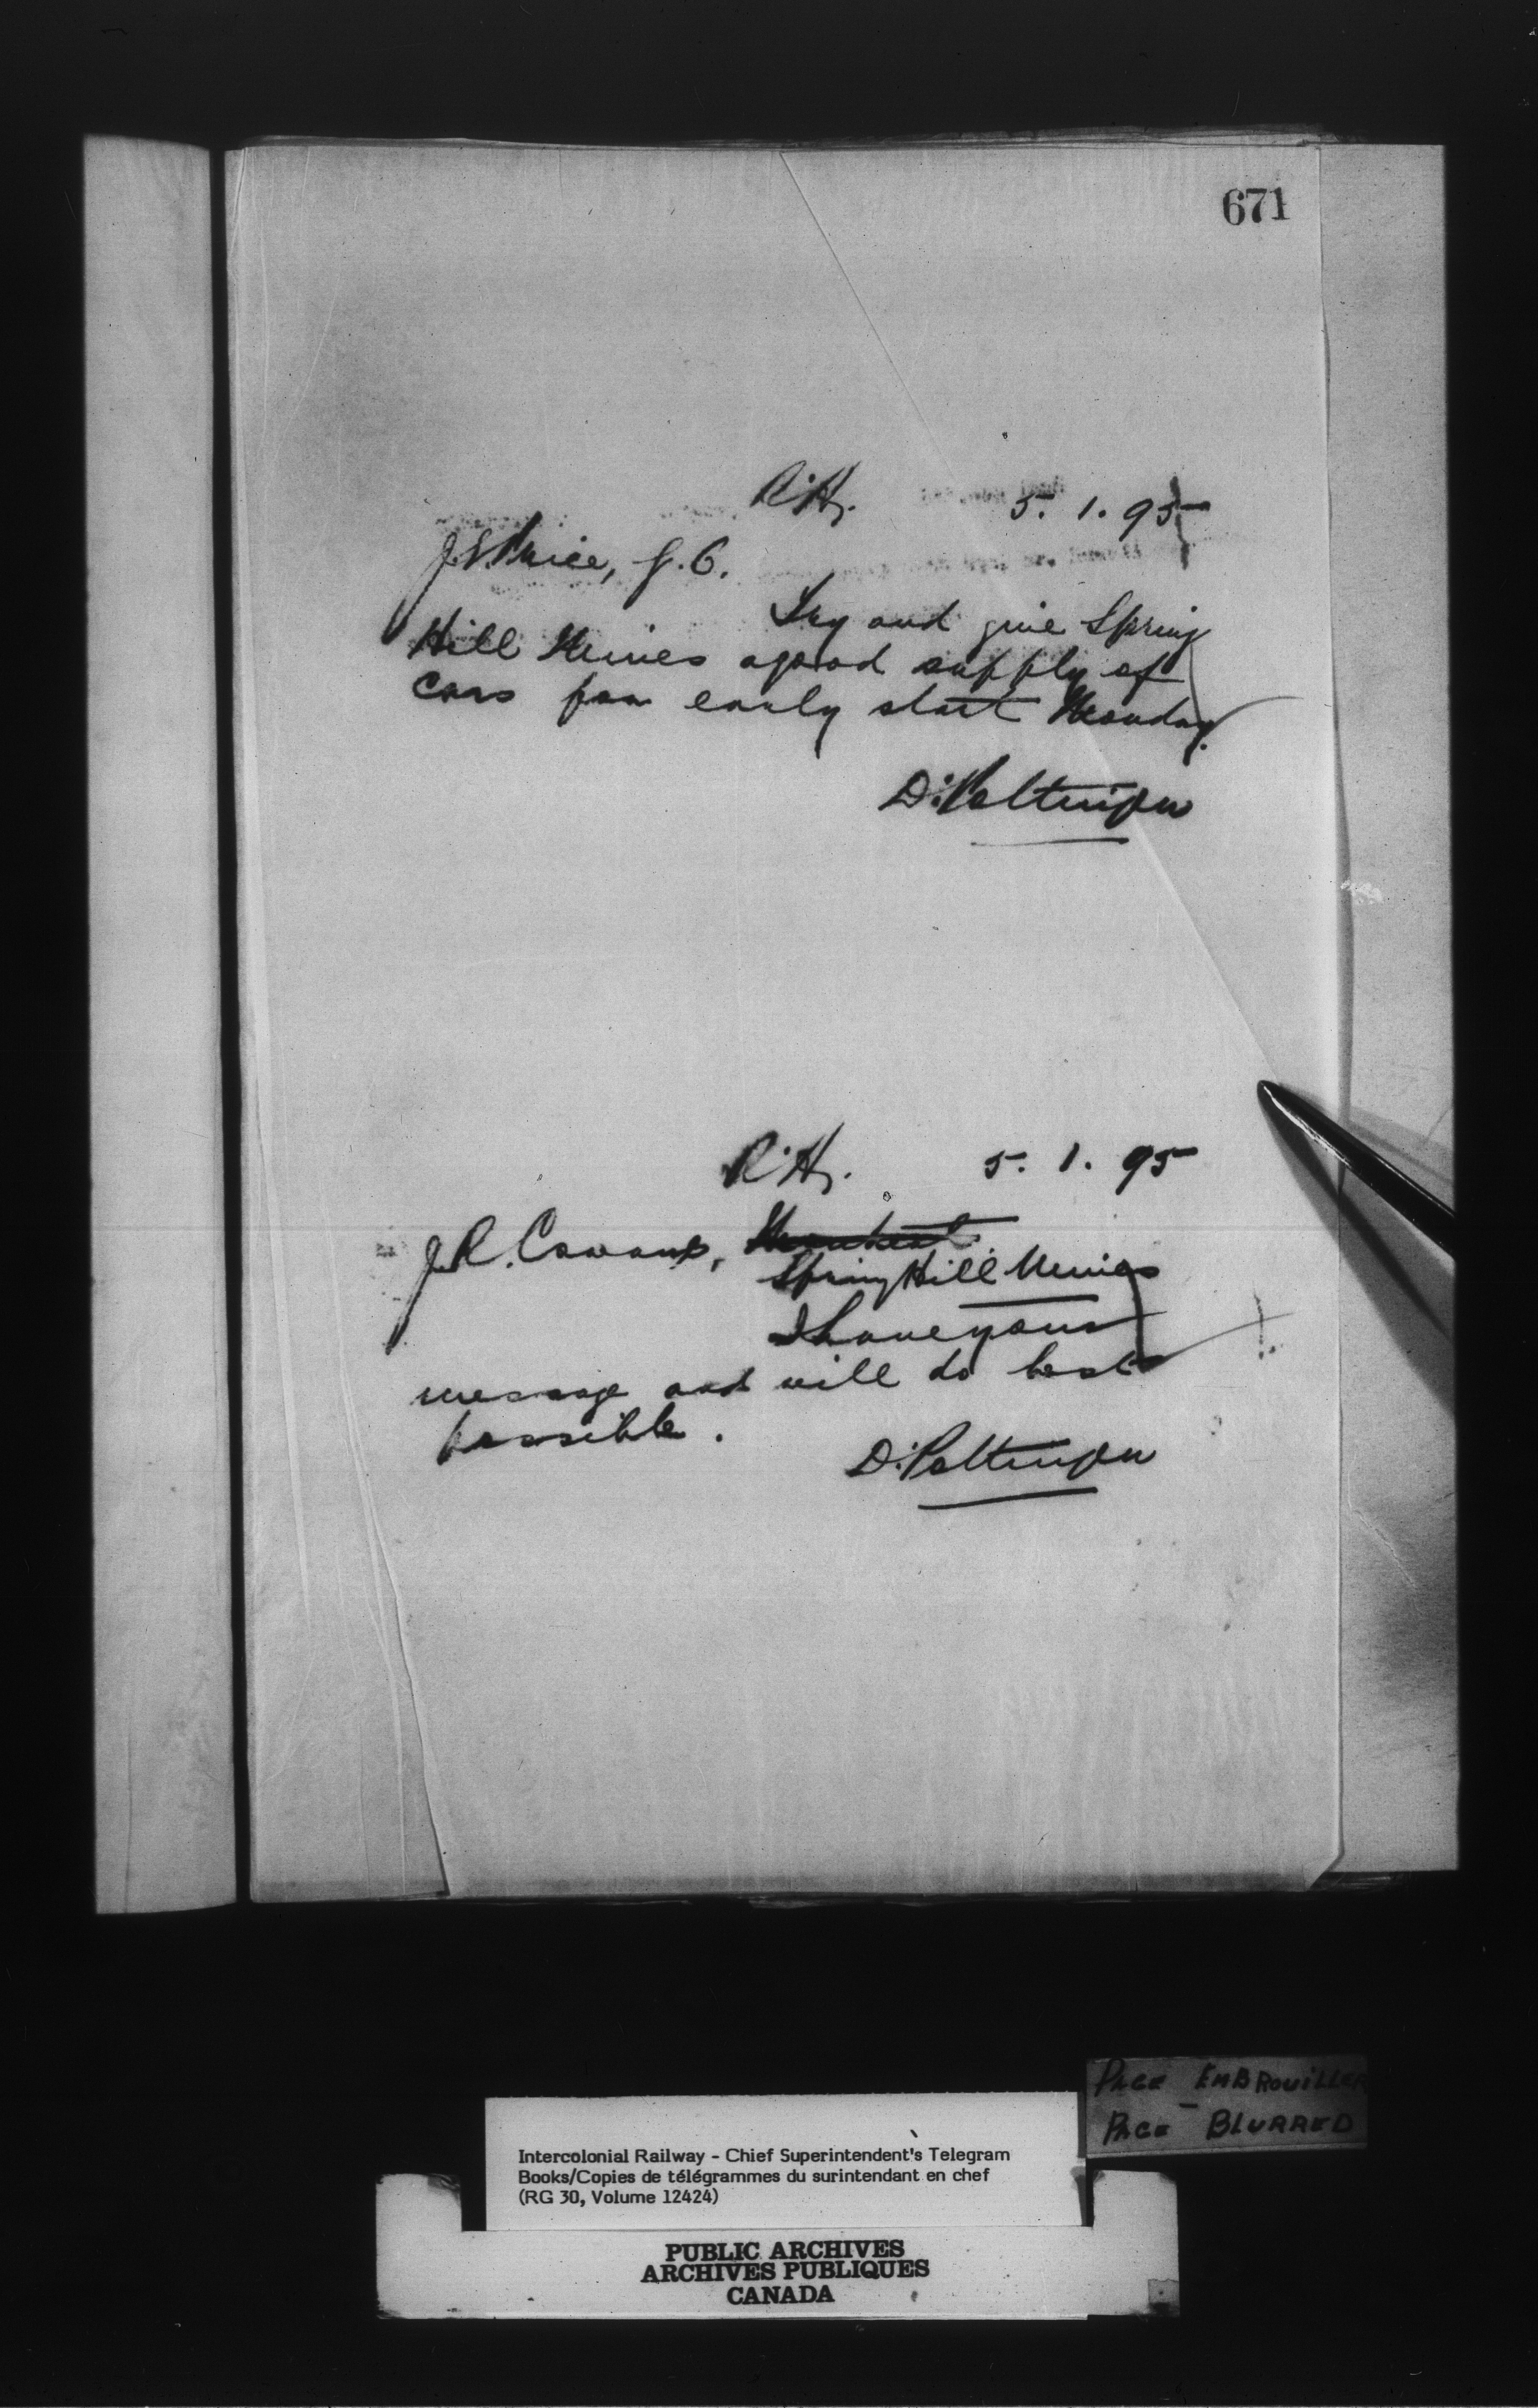 671
R.Hy. 5. 1. 95
J. E. Price, J. C.
Try and give Spring
Hill Mines a good supply of
cars for early start Monday.
D. Pottinger
R.Hy. 5. 1. 95
J. R. Cowans,
Spring Hill Mines
I have your
message and will do best
possible.
D. Pottinger
PAGE EMBROUILLER
PAGE BLURRED
Intercolonial Railway - Chief Superintendent's Telegram
Books/Copies de télégrammes du surintendant en chef
(RG 30, Volume 12424)
PUBLIC ARCHIVES
ARCHIVES PUBLIQUES
CANADA